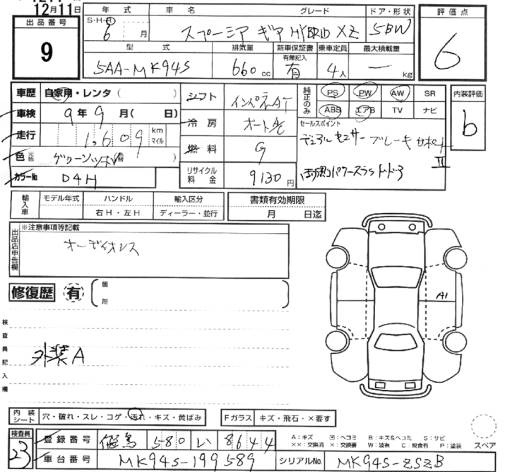 12月11日
出品番号
9
S・H・R 年式
6 月
車名
スペーシア ギア HYBRID XZ
グレード
ドア・形状
5BW
評価点
6
型式
5AA-MK94S
排気量
660cc
新車保証書
有無記入
有
乗車定員
4人
最大積載量
kg
車歴 自家用・レンタ( )
車検 9年9月( 日)
走行 1,609 km マイル
色
カラーNo D4H
シフト インパネAT
冷房 オートAC
燃料 G
リサイクル料金 9130円
純正のみ
PS PW AW SR
ABS エアB TV ナビ
セールスポイント
デュアルセンサーブレーキサポートII
両側パワースライドドア
内装評価
b
輸入車
モデル年式 ハンドル 輸入区分
右H・左H ディーラー・並行
書類有効期限
月 日迄
出品店申告欄
※注意事項等記載
オーディオレス
修復歴 有 ( 箇所 )
検査員記入欄
外装A
A1
内装シート 穴・破れ・スレ・コゲ・汚れ・キズ・黄ばみ
Fガラス キズ・飛石・×要す
検査員
23
登録番号 580 い 8644
車台番号 MK94S-199589
シリアルNo. MK94S-ZSZB
スペア